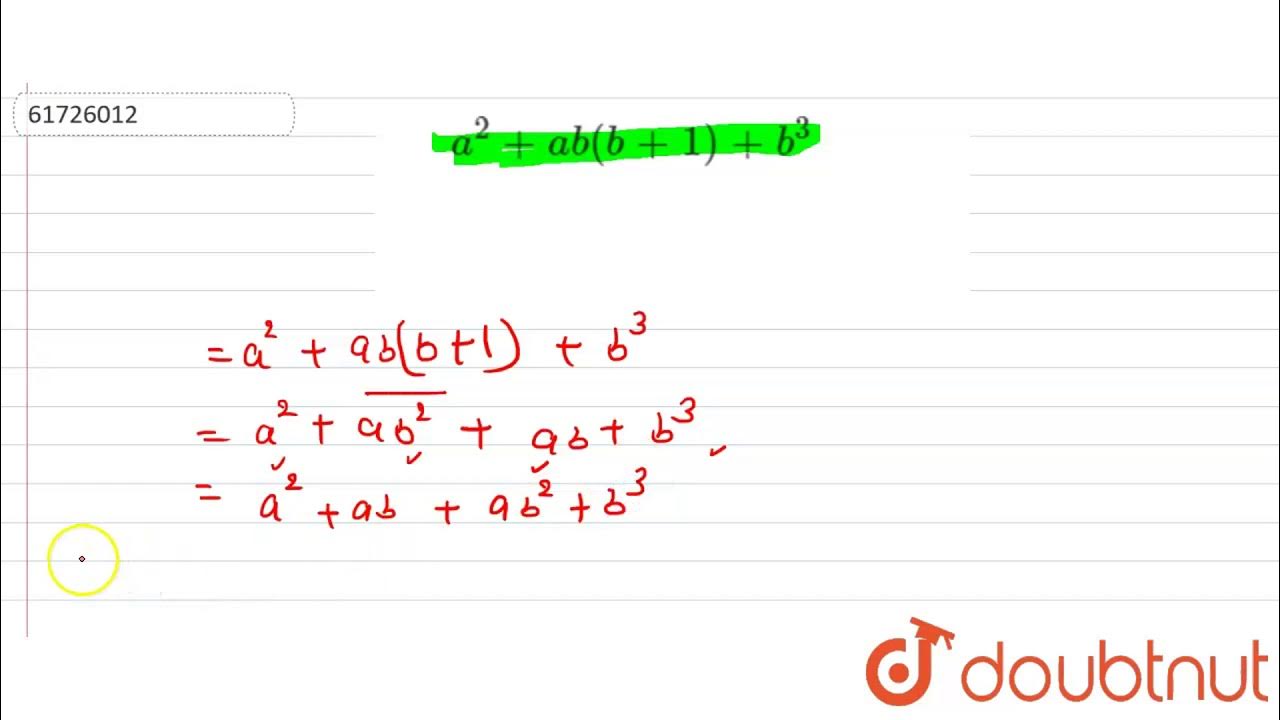 61726012
a² + ab(b + 1) + b³
= a² + ab(b+1) + b³
= a² + ab² + ab + b³
= a² + ab + ab² + b³
doubtnut